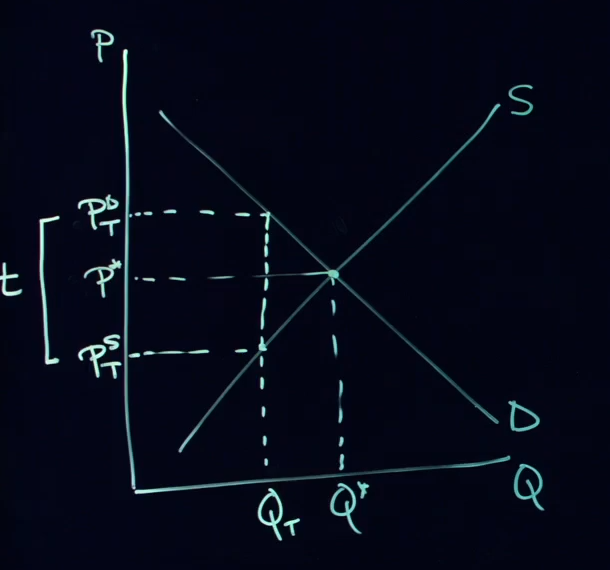 P
S
P_T^D
t
P*
P_T^S
D
Q
Q_T
Q*